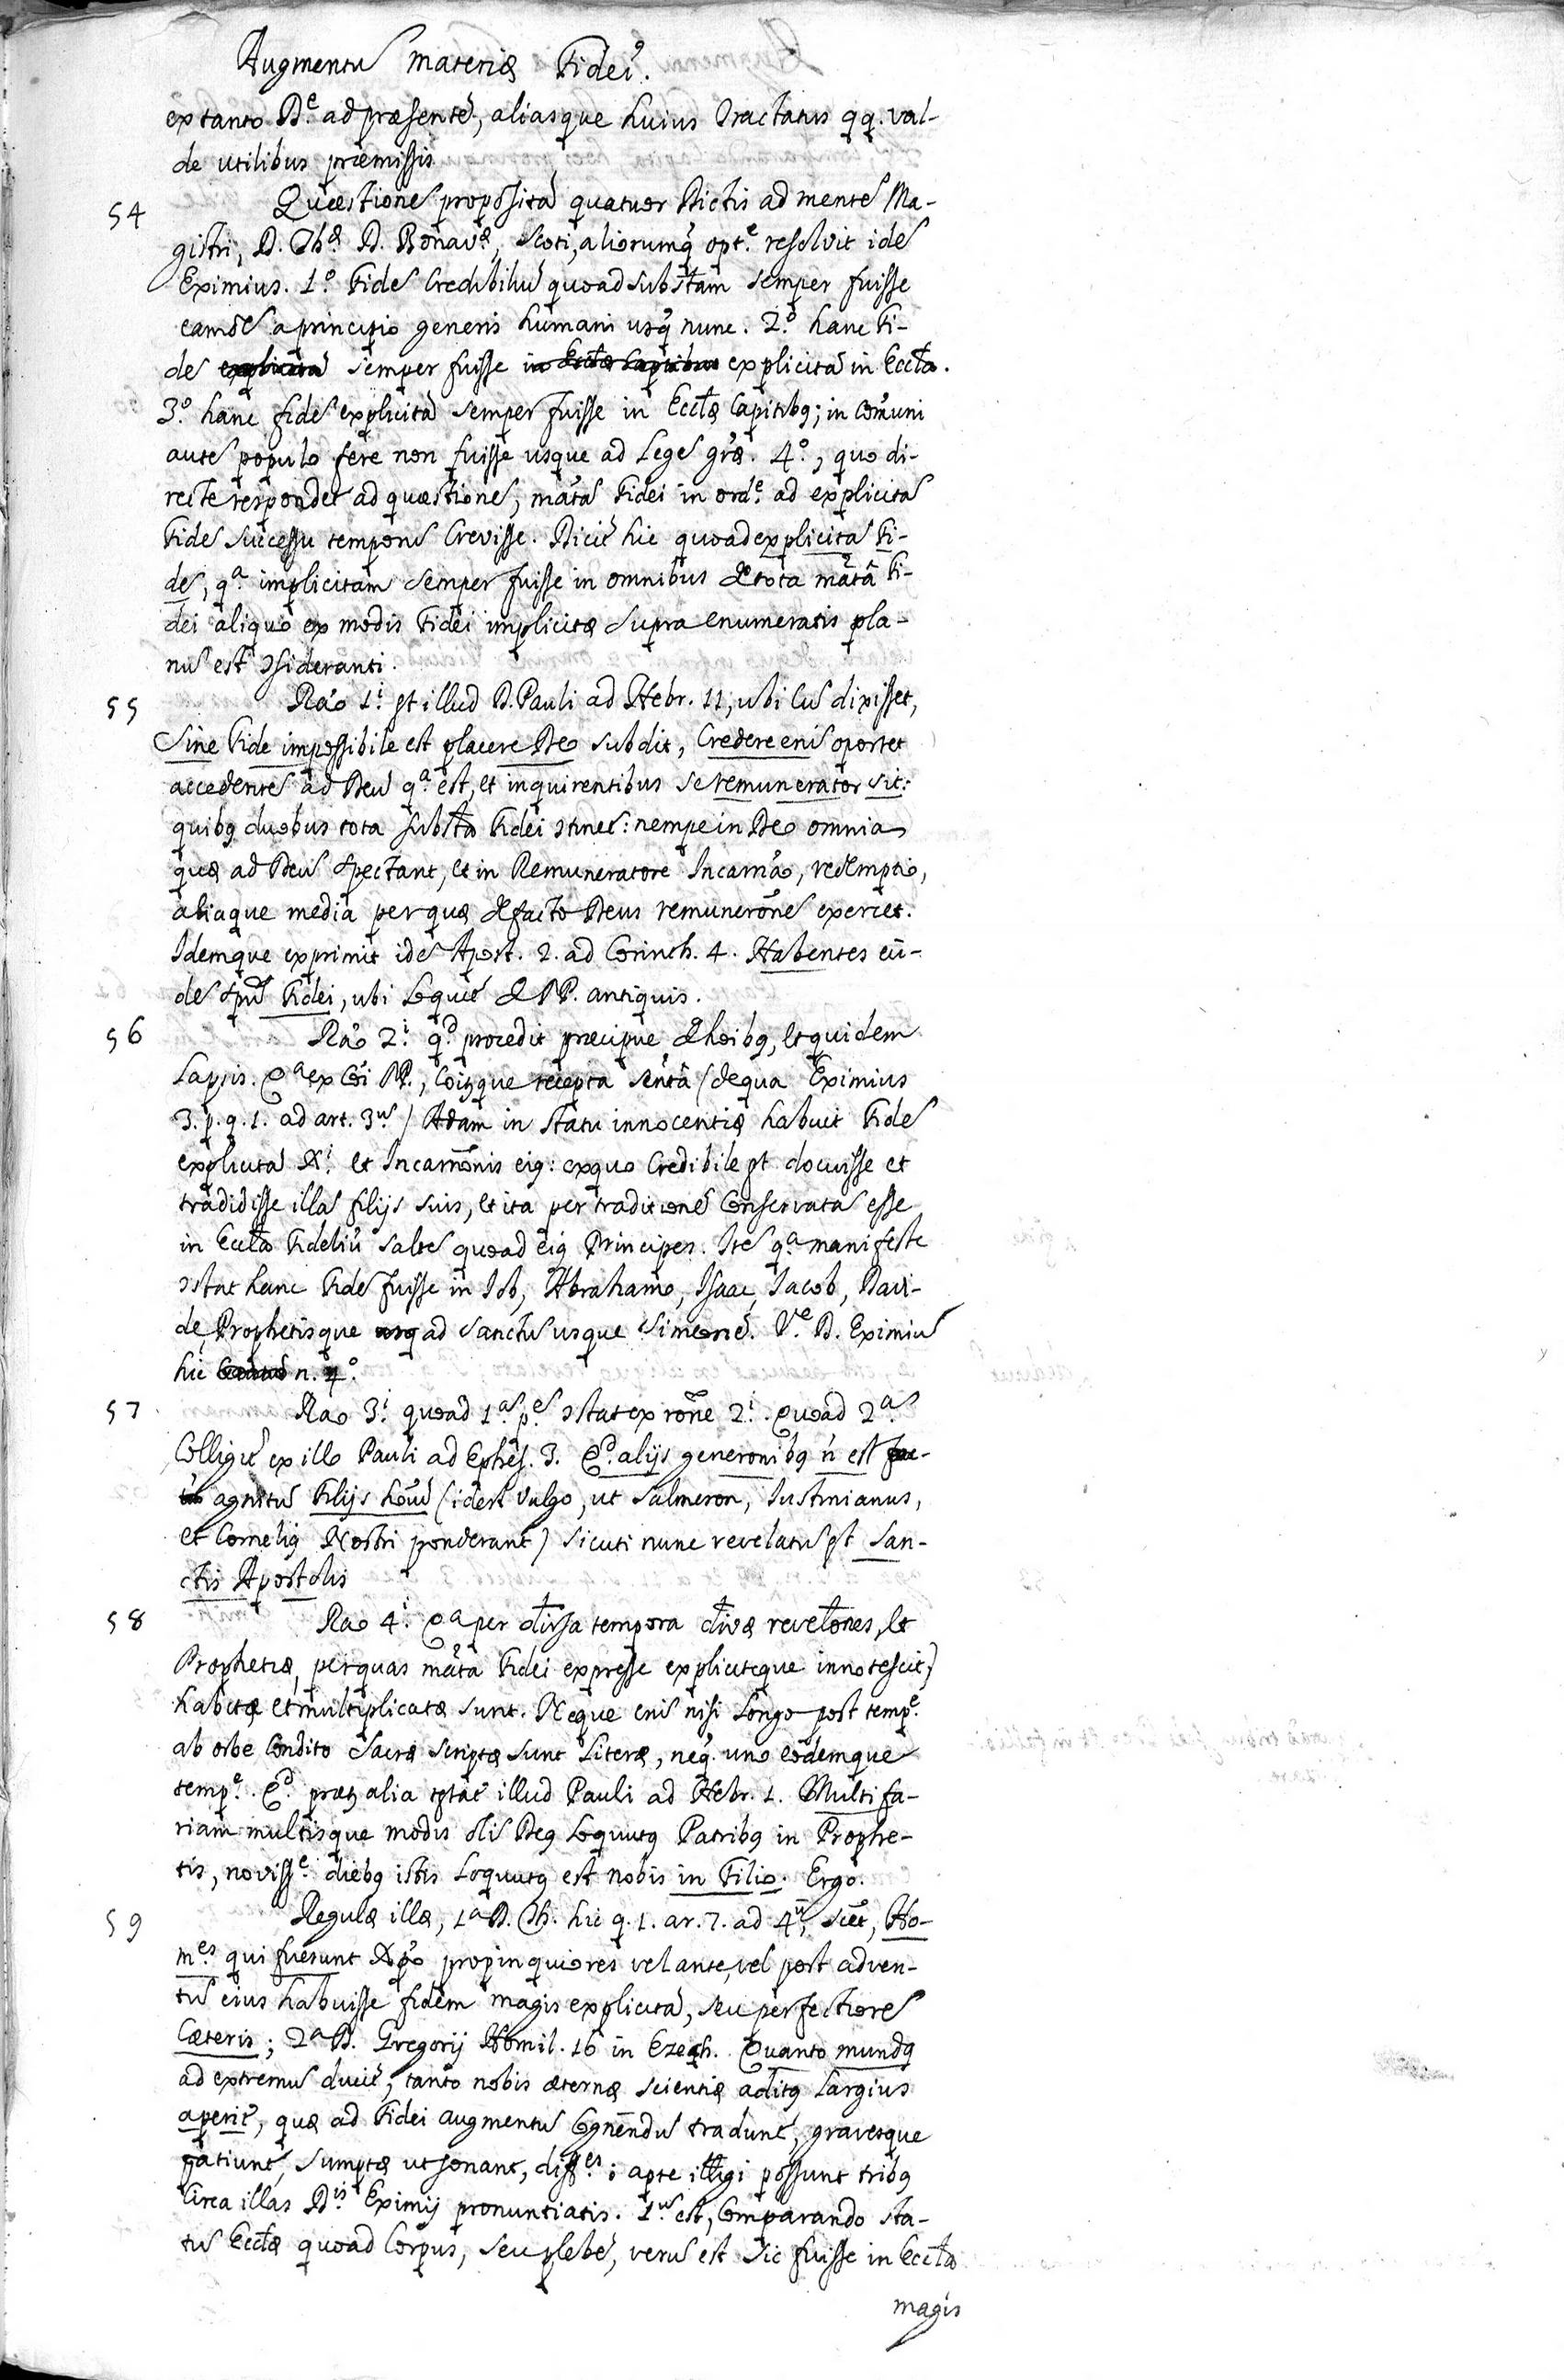 Augmentũ materiæ Fidei.
ex tanto De. ad præsentẽ, aliasque huius Tractatus qq. val-
de utilibus præmissis
54 Quæstionẽ propositã quatuor Dictis ad mentẽ Ma-
gistri, D. Thæ. D. Bonavæ, Scoti, aliorumq̃ opte. resolvit idẽ
Eximius. 1º Fidẽ Credibiliũ quoad substam semper fuisse
eamdẽ a principio generis humani usq̃ nunc. 2º. hanc Fi-
dẽ semper fuisse explicitã in Eccla.
3º. hanc fidẽ explicitã semper fuisse in Ecclæ Capitibꝯ; in Comuni
autẽ populo fere non fuisse usque ad Legẽ græ. 4º, quo di-
recte respondet ad quæstionẽ, matã Fidei in orde. ad explicitã
Fidẽ successu temporis Crevisse. Dicit hic quoad explicitã Fi-
dẽ, qa implicitam semper fuisse in omnibus de tota matã Fi-
dei aliquo ex modis Fidei implicitæ supra enumeratis pla-
nũ est ɔsideranti.
55 Rão 1i. st illud D. Pauli ad Hebr. 11, ubi Cũ dixisset,
Sine Fide impossibile est placere Deo subdit, Credere enĩ oportet
accedentẽ ad Deũ qa. est, et inquirentibus se remunerator sit:
quibꝯ duobus tota substa Fidei ɔtinet: nempe in Deo omnia
quæ ad Deũ spectant, et in Remuneratore Incarnão, redemptio,
aliaque media per quæ de facto Deus remuneronẽ exercet.
Idemque exprimit idẽ Apost. 2. ad Corinth. 4. Habentes eũ-
dẽ spũ Fidei, ubi Loquit̃ de PP. antiquis.
56 Rão 2i. qd procedit præcipue de hoibꝯ, et quidem
Lapsis. Qa ex Coi PP., Coiꝗque recepta sentã (de qua Eximius
3. p. q. 1. ad art. 3ũ) Adam in statu innocentiæ habuit Fidẽ
explicitã Xi. et Incarnonis eiꝯ: ex quo Credibile st docuisse et
tradidisse illã filijs suis, et ita per traditionẽ Conservatã esse
in Eccla Fideliũ saltẽ quoad eiꝯ Principes. Itẽ qa manifeste
ɔstat hanc Fidẽ fuisse in Iob, Abrahamo, Isaac, Iacob, Davi-
de, Prophetisque ad Sanctũ usque Simeonẽ. Ve. D. Eximiũ
hic n. 4º.
57 Rão 3i. quoad 1ã pẽ ɔstat ex rone 2i. Quoad 2ã
Colligit̃ ex illo Pauli ad Ephes. 3. Qd. alijs generonibꝯ ñ est
agnitũ Filijs hoũ (idest vulgo, ut Salmeron, Iustinianus,
et Corneliꝯ Nostri ponderant) sicuti nunc revelatũ st San-
ctis Apostolis
58 Rão 4i. Qa per divsa tempora divæ revelones, et
Prophetiæ, per quas matã Fidei expresse expliciteque innotescit,
habitæ et multiplicatæ sunt. Neque enĩ nisi Longo post tempe.
ab orbe Condito Sacræ Scriptæ sunt Literæ, neq̃ uno eodemque
tempe. Qd. præt alia ɔstat illud Pauli ad Hebr. 1. Multifa-
riam multisque modis olĩ Deꝯ Loquutꝯ Patribꝯ in Prophe-
tis, novisse. diebꝯ istis Loquutꝯ est nobis in Filio. Ergo.
59 Regulæ illæ, 1a D. Th. hic q. 1. ar. 7. ad 4ũ, sciet, Ho-
mes qui fuerunt Xpo propinquiores vel ante, vel post adven-
tũ eius habuisse fidem magis explicitã, seu perfectiorẽ
Cæteris; 2a D. Gregorij Homil. 16 in Ezech. Quanto mundꝯ
ad extremũ ducit̃, tanto nobis æternæ scientiæ aditꝯ Largius
aperit̃, quæ ad Fidei augmentũ Cognẽndũ tradunt̃, gravesque
patiunt̃, sumptæ ut sonant, diffes; apte illigi possunt tribꝯ
Circa illas Dis. Eximij pronuntiatis. 1ũ est, Comparando sta-
tũ Ecclæ quoad Corpus, seu plebẽ, verũ est sic fuisse in Eccla
magis